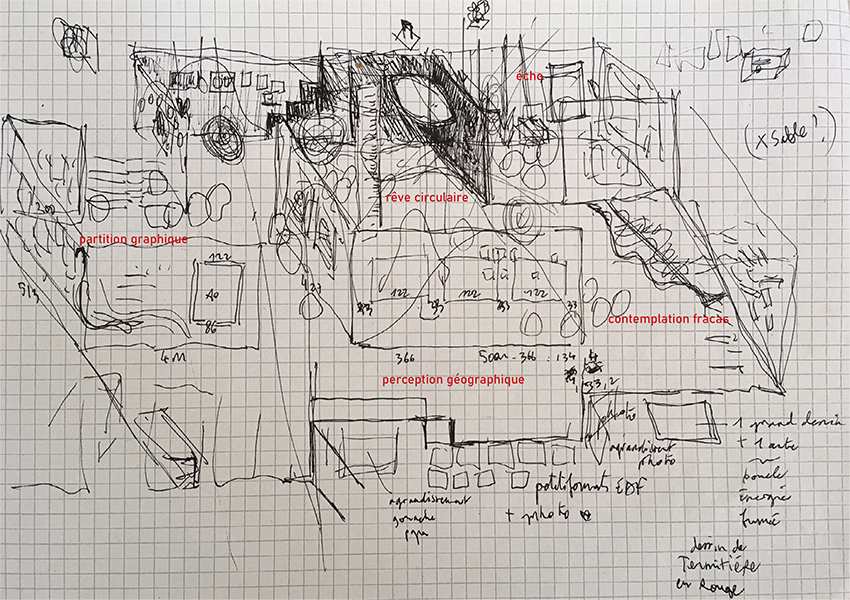 éche
(x sable !)
rêve circulaire
200
partition graphique
122
A0
86
4M
122
122
122
33
33
33
contemplation fracas
366
500m - 366 : 134
33,2
perception géographique
photo
1 grand dessin
+ 1 autre
agrandissement
photo
boucle
énergie
fumée
petits formats EDF
+ photo
agrandissement
gouache
dessin de
Termitière
en Rouge